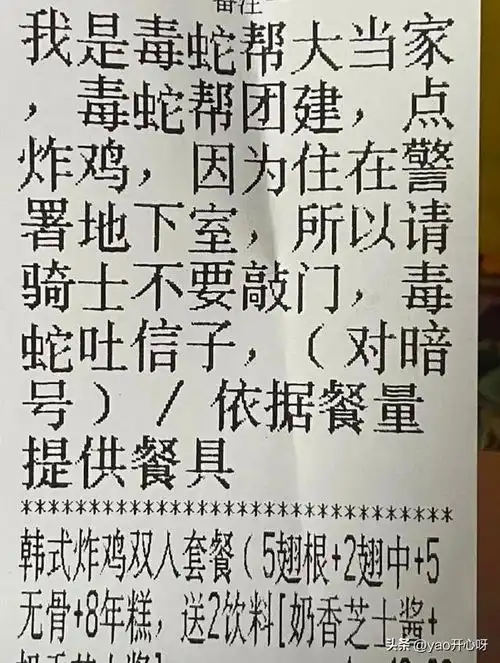 备注
我是毒蛇帮大当家
，毒蛇帮团建，点
炸鸡，因为住在警
署地下室，所以请
骑士不要敲门，毒
蛇吐信子，（对暗
号）/ 依据餐量
提供餐具
********************************
韩式炸鸡双人套餐（5翅根+2翅中+5
无骨+8年糕，送2饮料[奶香芝士酱+
头条 @yao开心呀